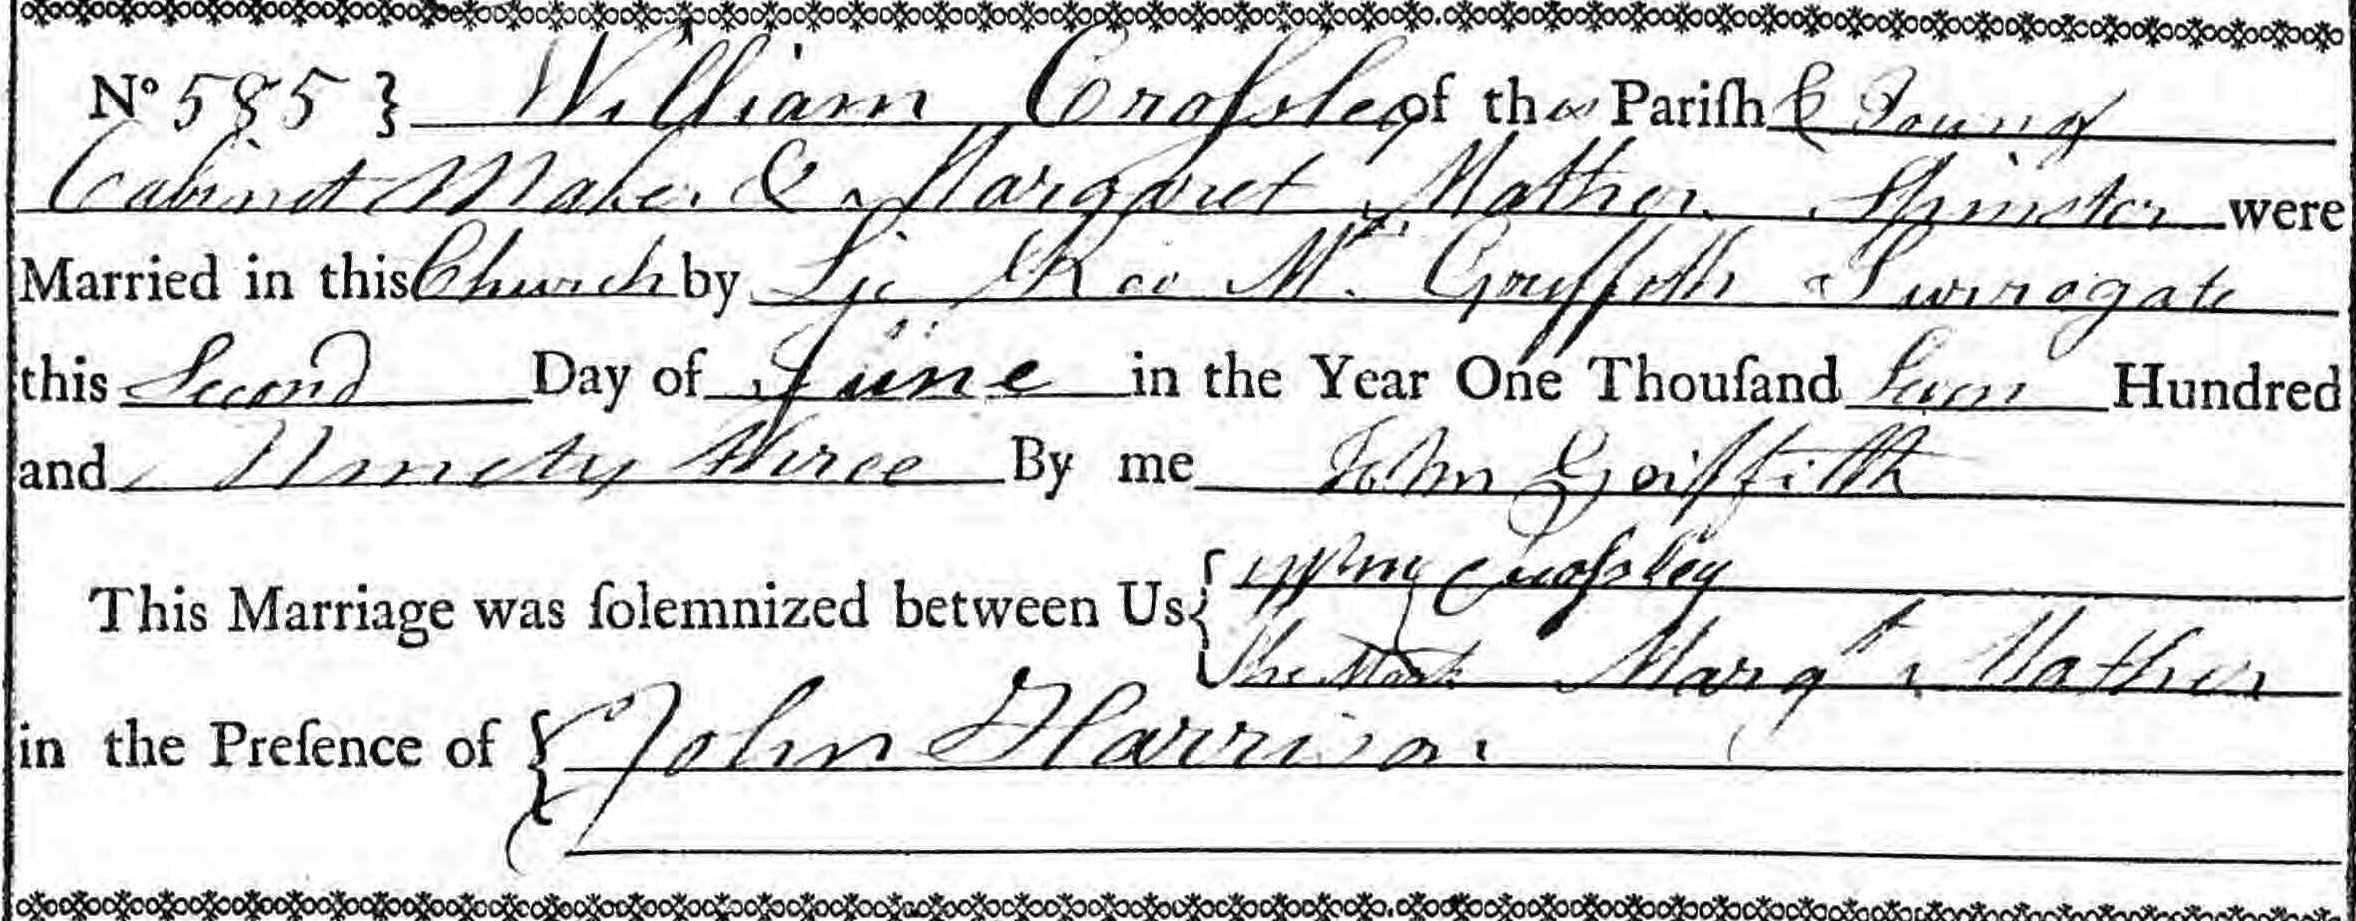 Nº 585 } William Croſsley of this Pariſh & Town
Cabinet Maker & Margaret Mather Spinster were
Married in this Church by Lic Rev Mr. Griffith Surrogate
this Second Day of June in the Year One Thouſand Seven Hundred
and Ninety three By me John Griffith
This Marriage was ſolemnized between Us { Wm Croſsley
The Mark Margt Mather
in the Preſence of { John Harrison